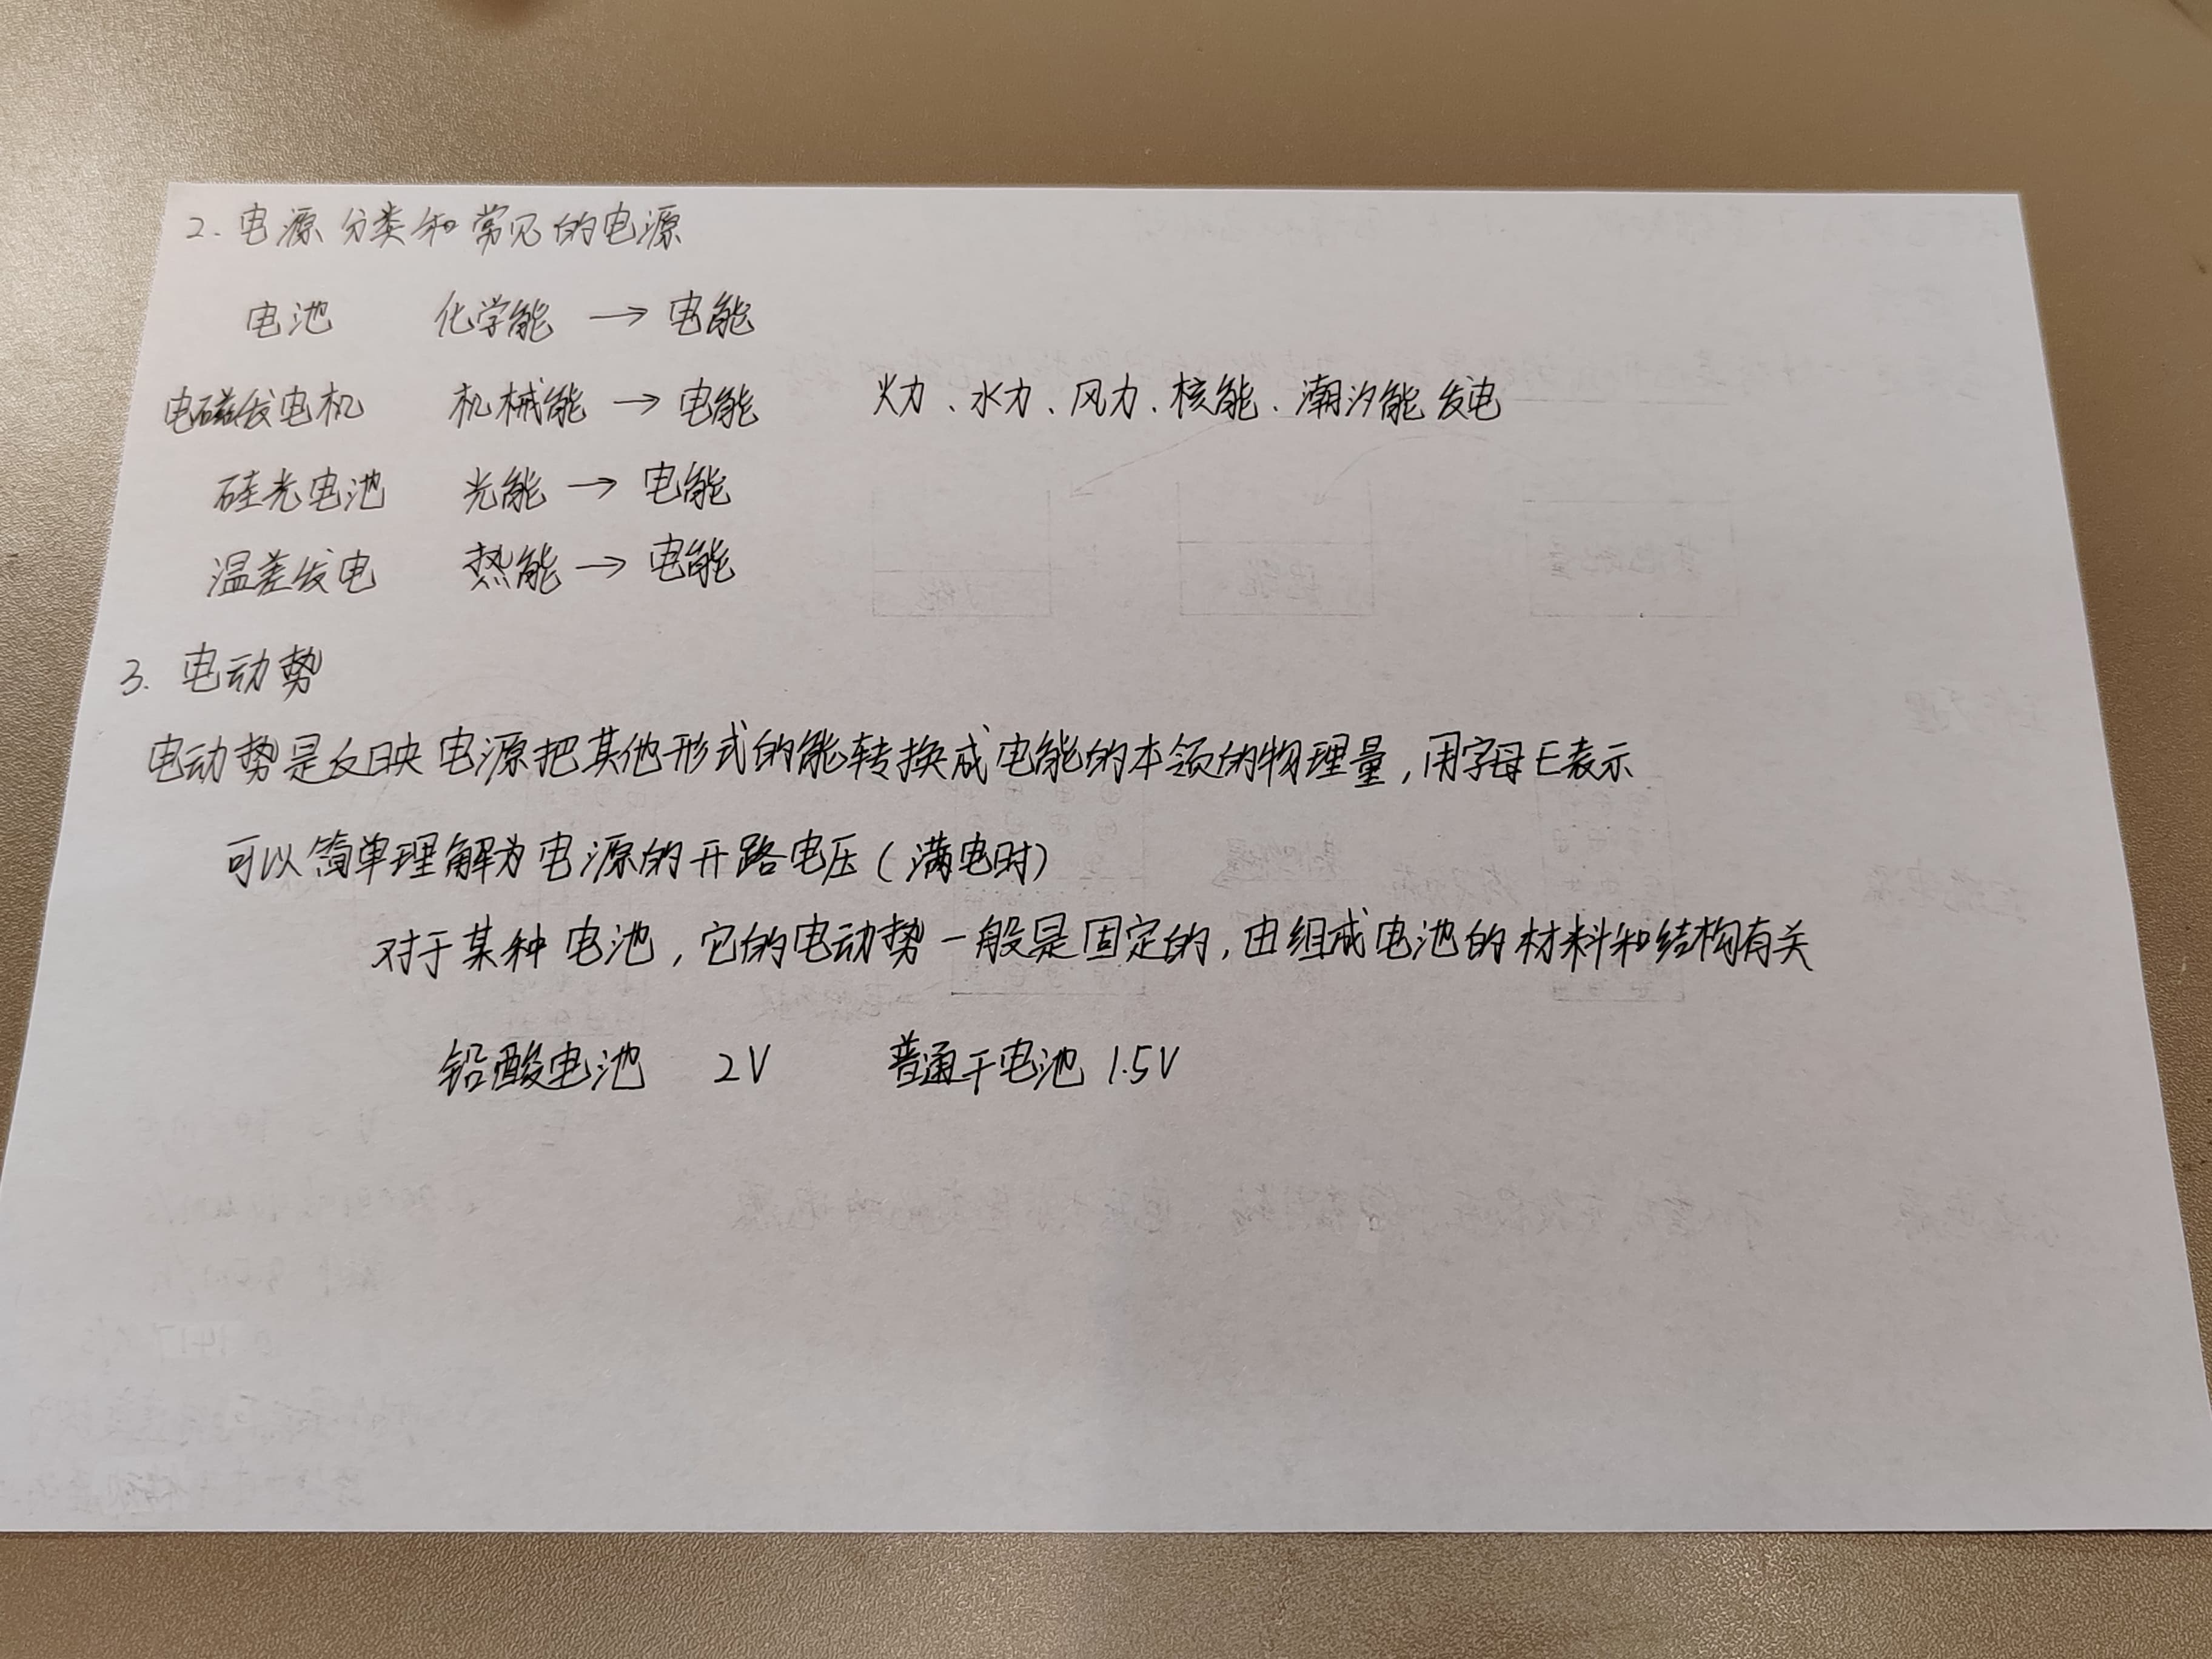 2. 电源分类和常见的电源
电池 化学能 → 电能
电磁发电机 机械能 → 电能 火力、水力、风力、核能、潮汐能发电
硅光电池 光能 → 电能
温差发电 热能 → 电能
3. 电动势
电动势是反映电源把其他形式的能转换成电能的本领的物理量,用字母E表示
可以简单理解为电源的开路电压(满电时)
对于某种电池,它的电动势一般是固定的,由组成电池的材料和结构有关
铅酸电池 2V 普通干电池 1.5V